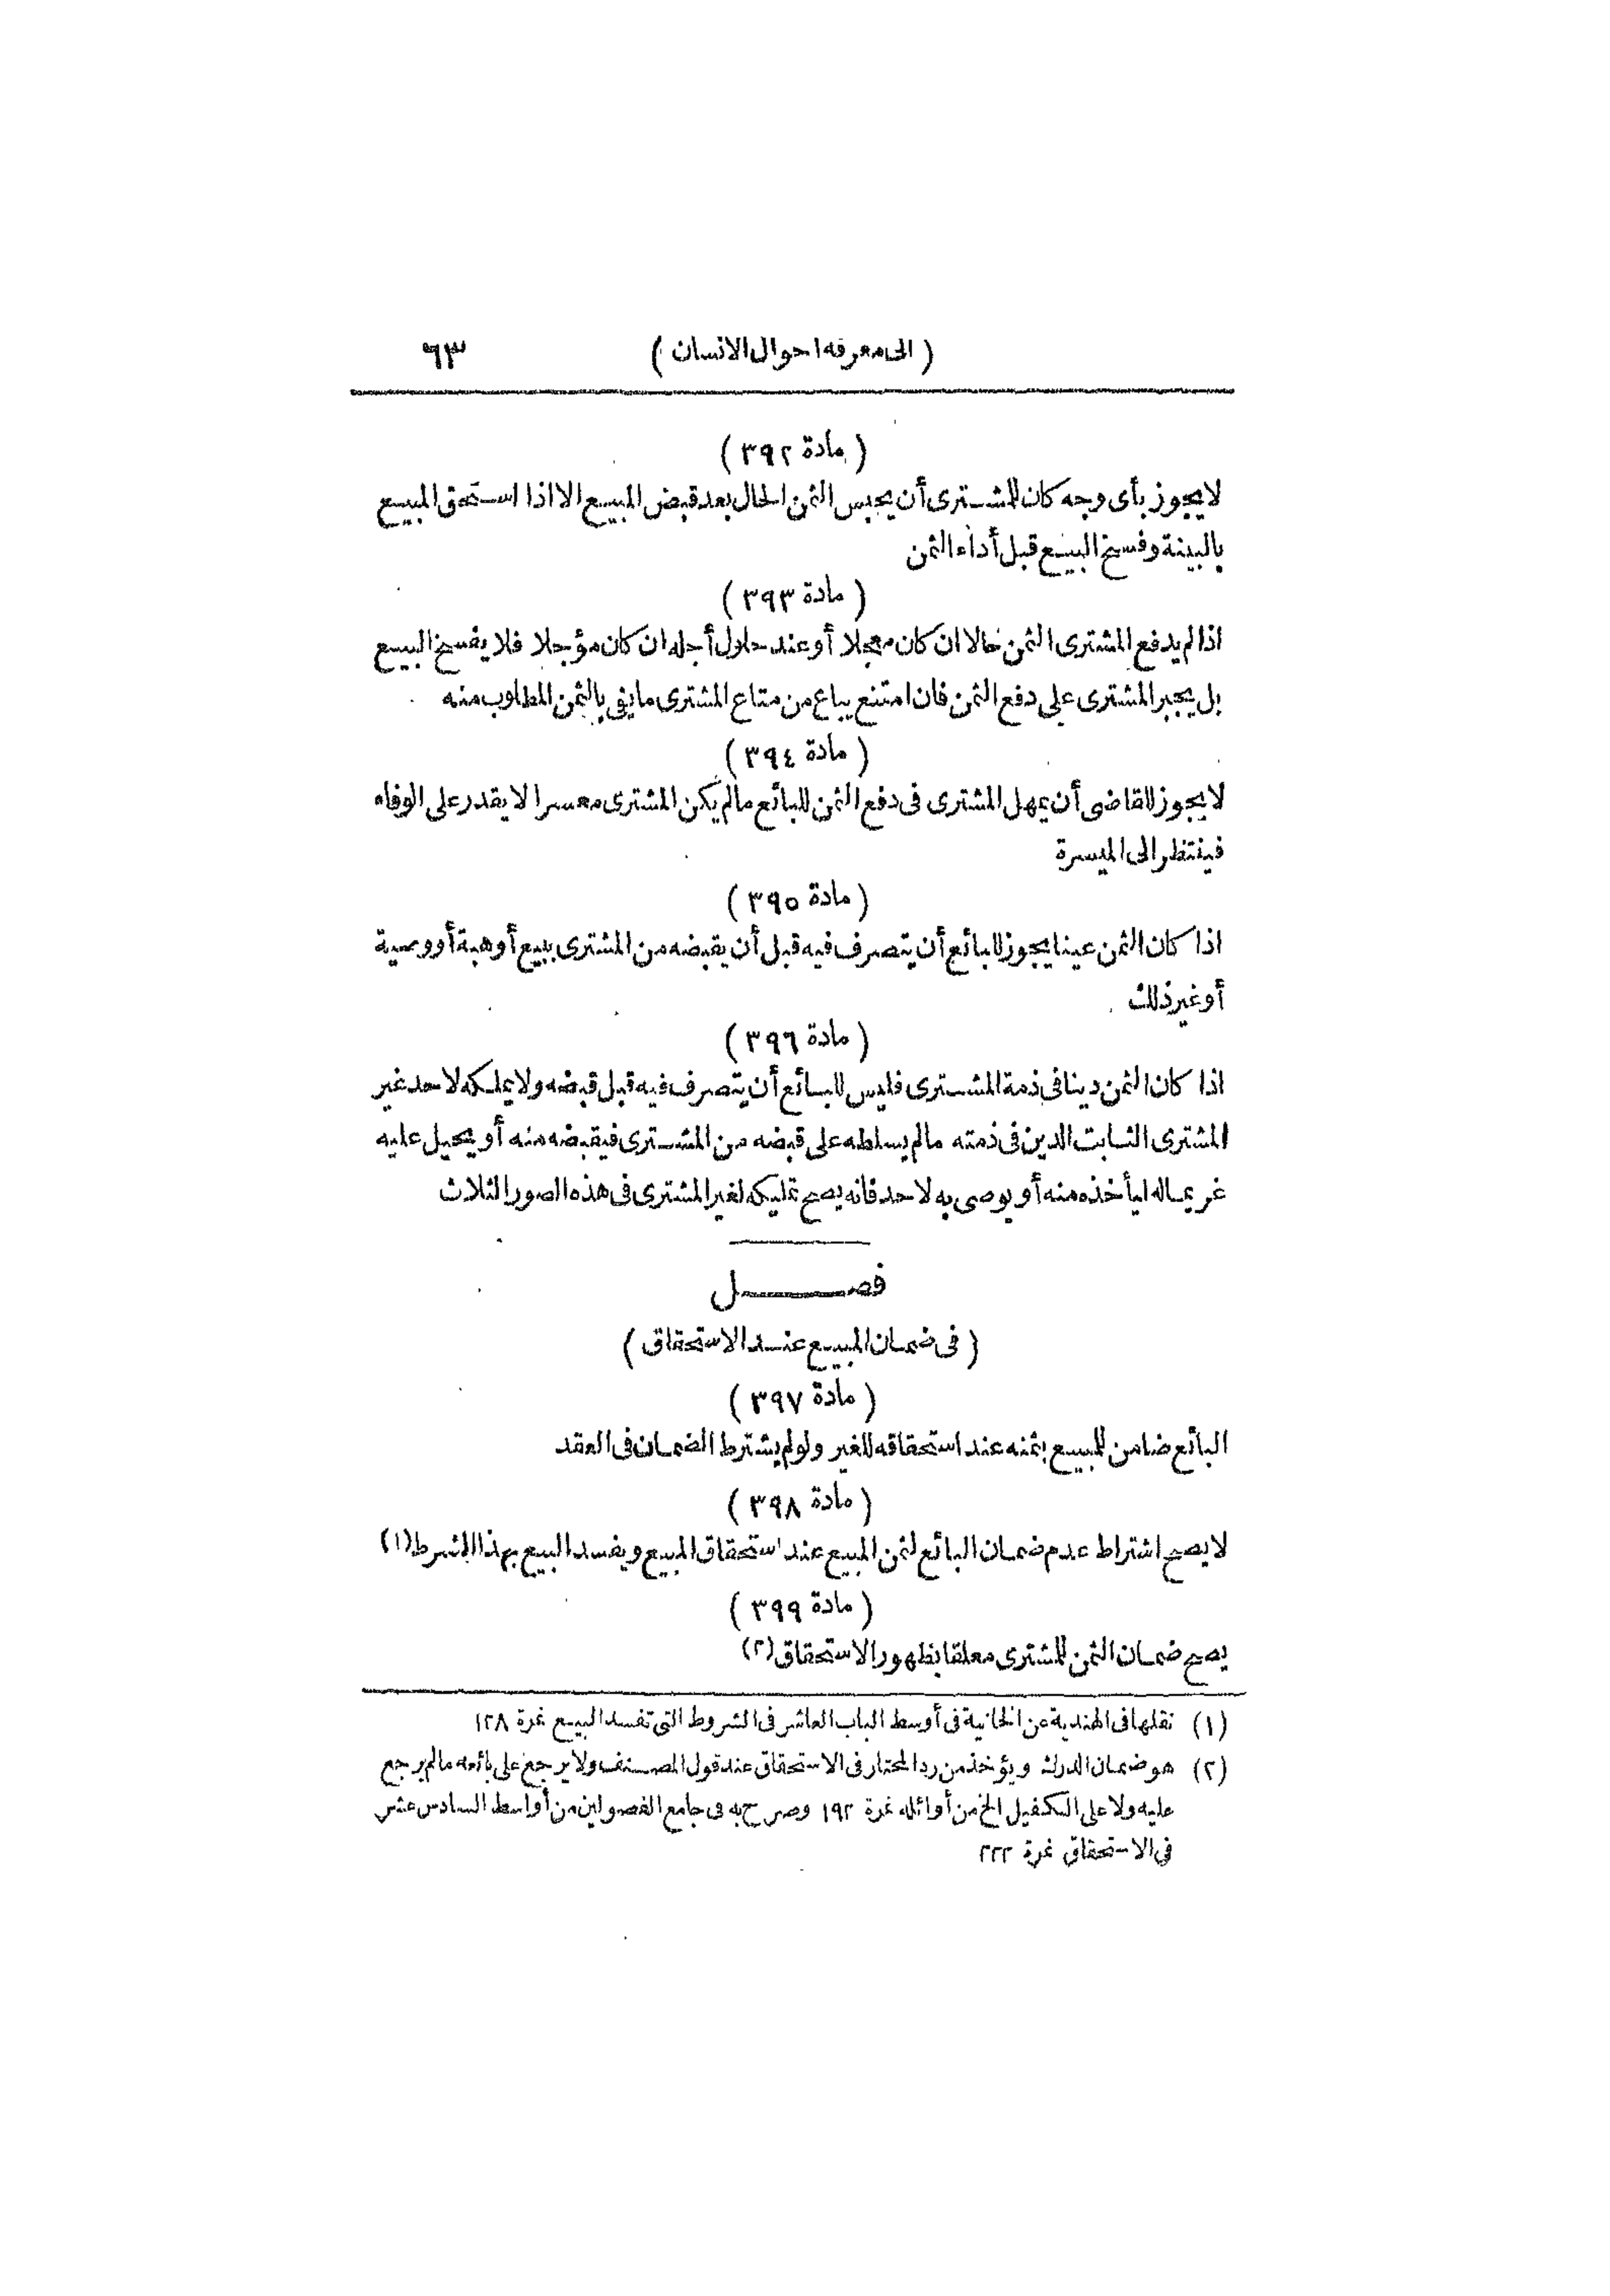 ( الى معرفة احوال الانسان ) ٦٣
( مادة ٣٩٢ )
لا يجوز بأى وجه كان للمشترى أن يحبس الثمن الحال بعد قبض المبيع الا اذا استحق المبيع
بالبينة وفسخ البيع قبل أداء الثمن
( مادة ٣٩٣ )
اذا لم يدفع المشترى الثمن حالا ان كان معجلا أو عند حلول أجله ان كان مؤجلا فلا يفسخ البيع
بل يجبر المشترى على دفع الثمن فان امتنع يباع من متاع المشترى ما يفى بالثمن المطلوب منه
( مادة ٣٩٤ )
لا يجوز للقاضى أن يمهل المشترى فى دفع الثمن للبائع ما لم يكن المشترى معسرا لا يقدر على الوفاء
فينتظر الى الميسرة
( مادة ٣٩٥ )
اذا كان الثمن عينا يجوز للبائع أن يتصرف فيه قبل أن يقبضه من المشترى ببيع أو هبة أو وصية
أو غير ذلك
( مادة ٣٩٦ )
اذا كان الثمن دينا فى ذمة المشترى فليس للبائع أن يتصرف فيه قبل قبضه ولا يملكه لاحد غير
المشترى الثابت الدين فى ذمته ما لم يسلطه على قبضه من المشترى فيقبضه منه أو يحيل عليه
غريماله ليأخذه منه أو يوصى به لاحد فانه يصح تمليكه لغير المشترى فى هذه الصور الثلاث
فصل
( فى ضمان المبيع عند الاستحقاق )
( مادة ٣٩٧ )
البائع ضامن للمبيع بثمنه عند استحقاقه للغير ولو لم يشترط الضمان فى العقد
( مادة ٣٩٨ )
لا يصح اشتراط عدم ضمان البائع لثمن المبيع عند استحقاق المبيع ويفسد البيع بهذا الشرط (١)
( مادة ٣٩٩ )
يصح ضمان الثمن للمشترى معلقا بظهور الاستحقاق (٢)
(١) نقلها فى الهندية عن الخانية فى أوسط الباب العاشر فى الشروط التى تفسد البيع نمرة ١٢٨
(٢) هو ضمان الدرك ويؤخذ من رد المحتار فى الاستحقاق عند قول المصنف ولا يرجع على بائعه ما لم يرجع
عليه ولا على الكفيل الخ من أوائله نمرة ١٩٢ وصرح به فى جامع الفصولين من أواسط السادس عشر
فى الاستحقاق نمرة ٢٢٢